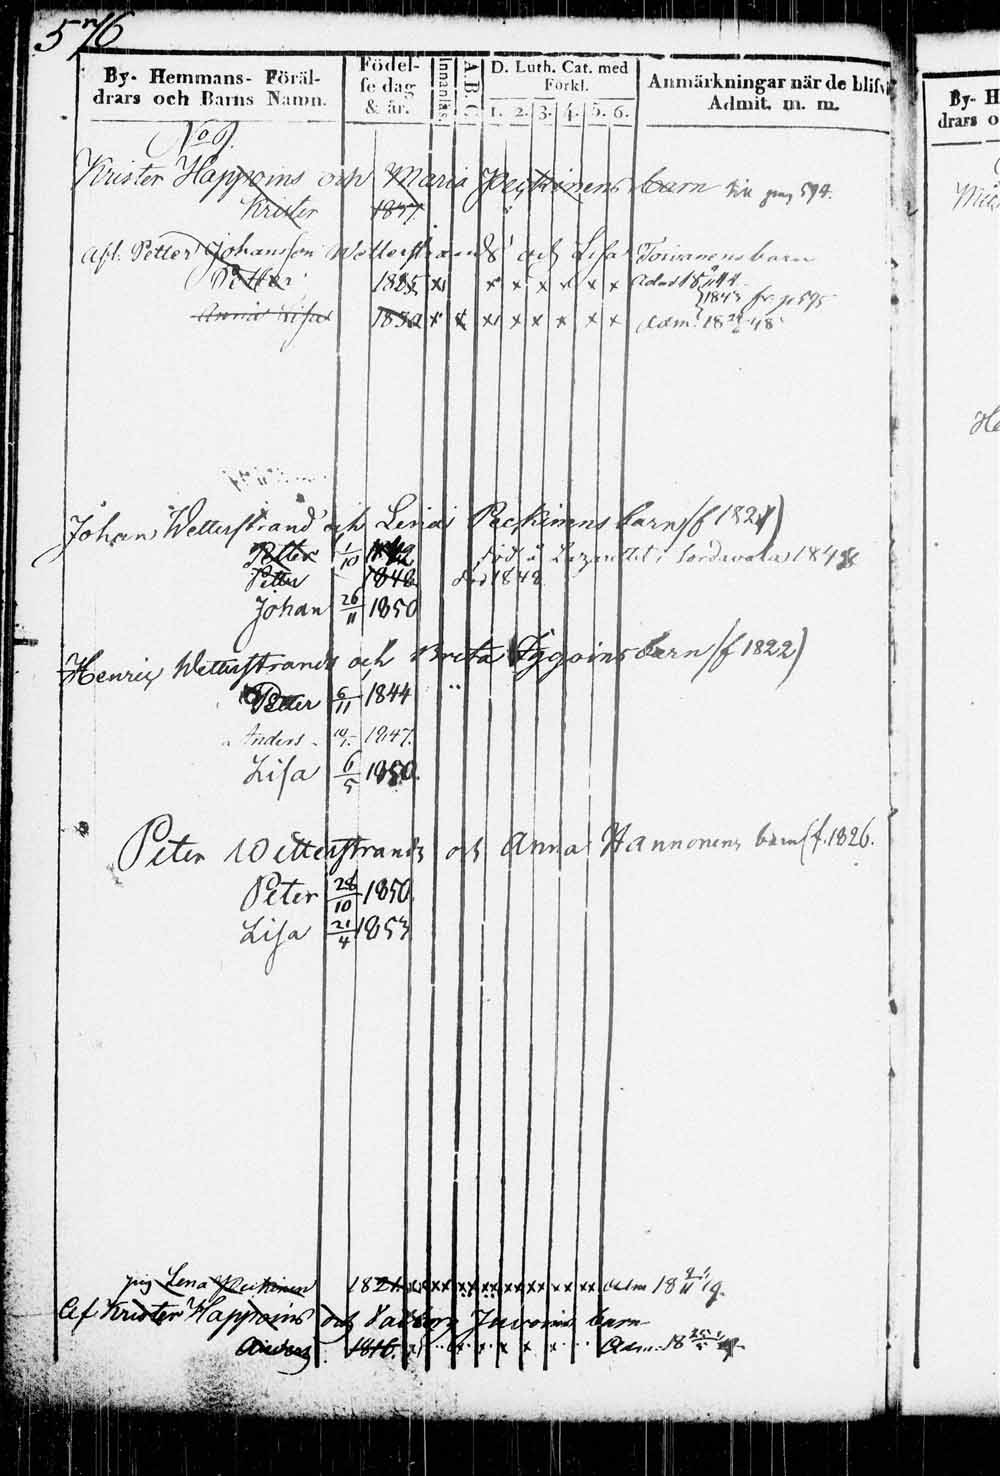 576
By- Hemmans- Föräl-
drars och Barns Namn.
Födel-
se dag
& år.
Innanläs.
A.B.C.
D. Luth. Cat. med
Förkl.
1. 2. 3. 4. 5. 6.
Anmärkningar när de blifvi
Admit. m. m.
No 9.
Krister Happoins och Maria Peckinens barn
Krister 1847
Afl. Petter Johansson Wetterstrands och Lisa Toivanens barn
Petter 1825 x x x x x x x
1843 fr. p 595
Anna Lisa 1830 x x x x x x x x Adm. 18 48
Johan Wetterstrands och Lena Peckinens barn (f 1821)
Petter 1/10
Petter 1848 Död 1848
Johan 26/11 1850
Henric Wetterstrands och Breta Iggoins barn (f 1822)
Petter 6/11 1844
Anders 1847.
Lisa 6/5 1850.
Peter Wetterstrands och Anna Hannonens barn (f. 1826.
Peter 28/10 1850
Lisa 21/4 1853
pig Lena Peckinen 1821 Adm 18
Af Krister Happoins och Juvonens barn
Anders 1816. Adm. 18
By- H
drars o